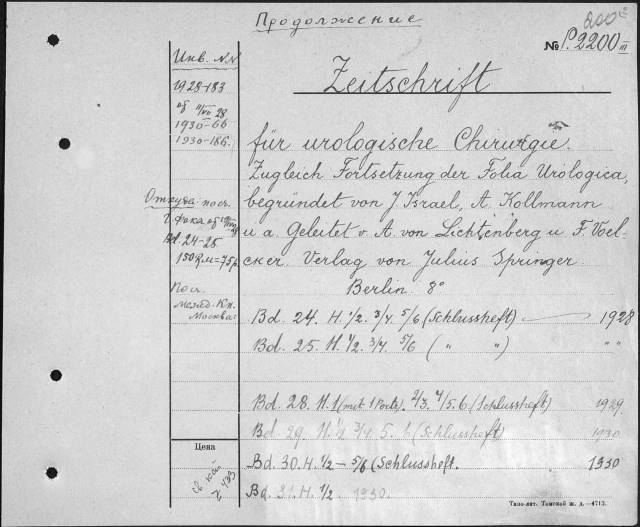 Продолжение
№ P. 2200 III
Инв. N.N
Zeitschrift
1928-183
1930-66
1930-186.
für urologische Chirurgie.
Zugleich Fortsetzung der Folia Urologica,
Откуда: пост.
begründet von J. Israel, A. Kollmann
u a. Geleitet v. A. von Lichtenberg u F. Voel-
Bd. 24-25
cker. Verlag von Julius Springer
150 R.M = 75р
Berlin. 8°
Пост.
Межд. Кн.
Москва:
Bd. 24. H. 1/2. 3/4. 5/6 (Schlussheft) 1928
Bd. 25. H. 1/2. 3/4. 5/6 ( " " ) " "
Bd. 28. H. 1 (mit 1 Portr.). 2/3. 4/5. 6 (Schlussheft) 1929
Bd. 29. H. 1/2 3/4. 5. 6 (Schlussheft) 1930
Цена
Bd. 30. H. 1/2 – 5/6 (Schlussheft. 1930
Bd. 31. H. 1/2. 1930.
Типо-лит. Томской ж. д. —4713.